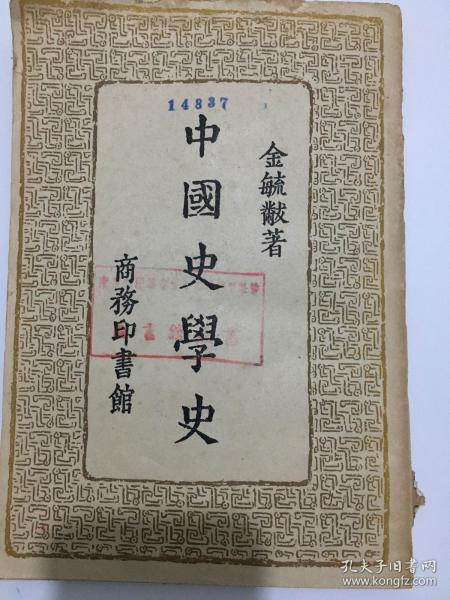 14837
金毓黻著
中國史學史
商務印書館
孔夫子旧书网
www.kongfz.com